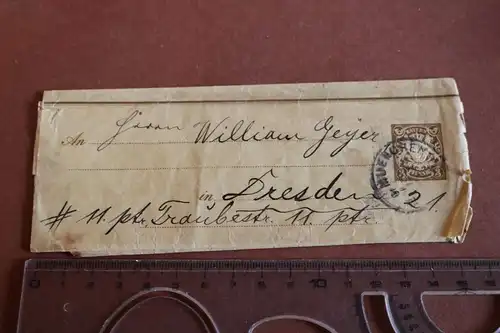 An Herrn William Geyer
BAYERN
MUENCHEN
in Dresden 21.
# 11. ptr. Traubestr. 11. ptr.
0 1 2 3 4 5 6 7 8 9 10 11 12 13 14 15